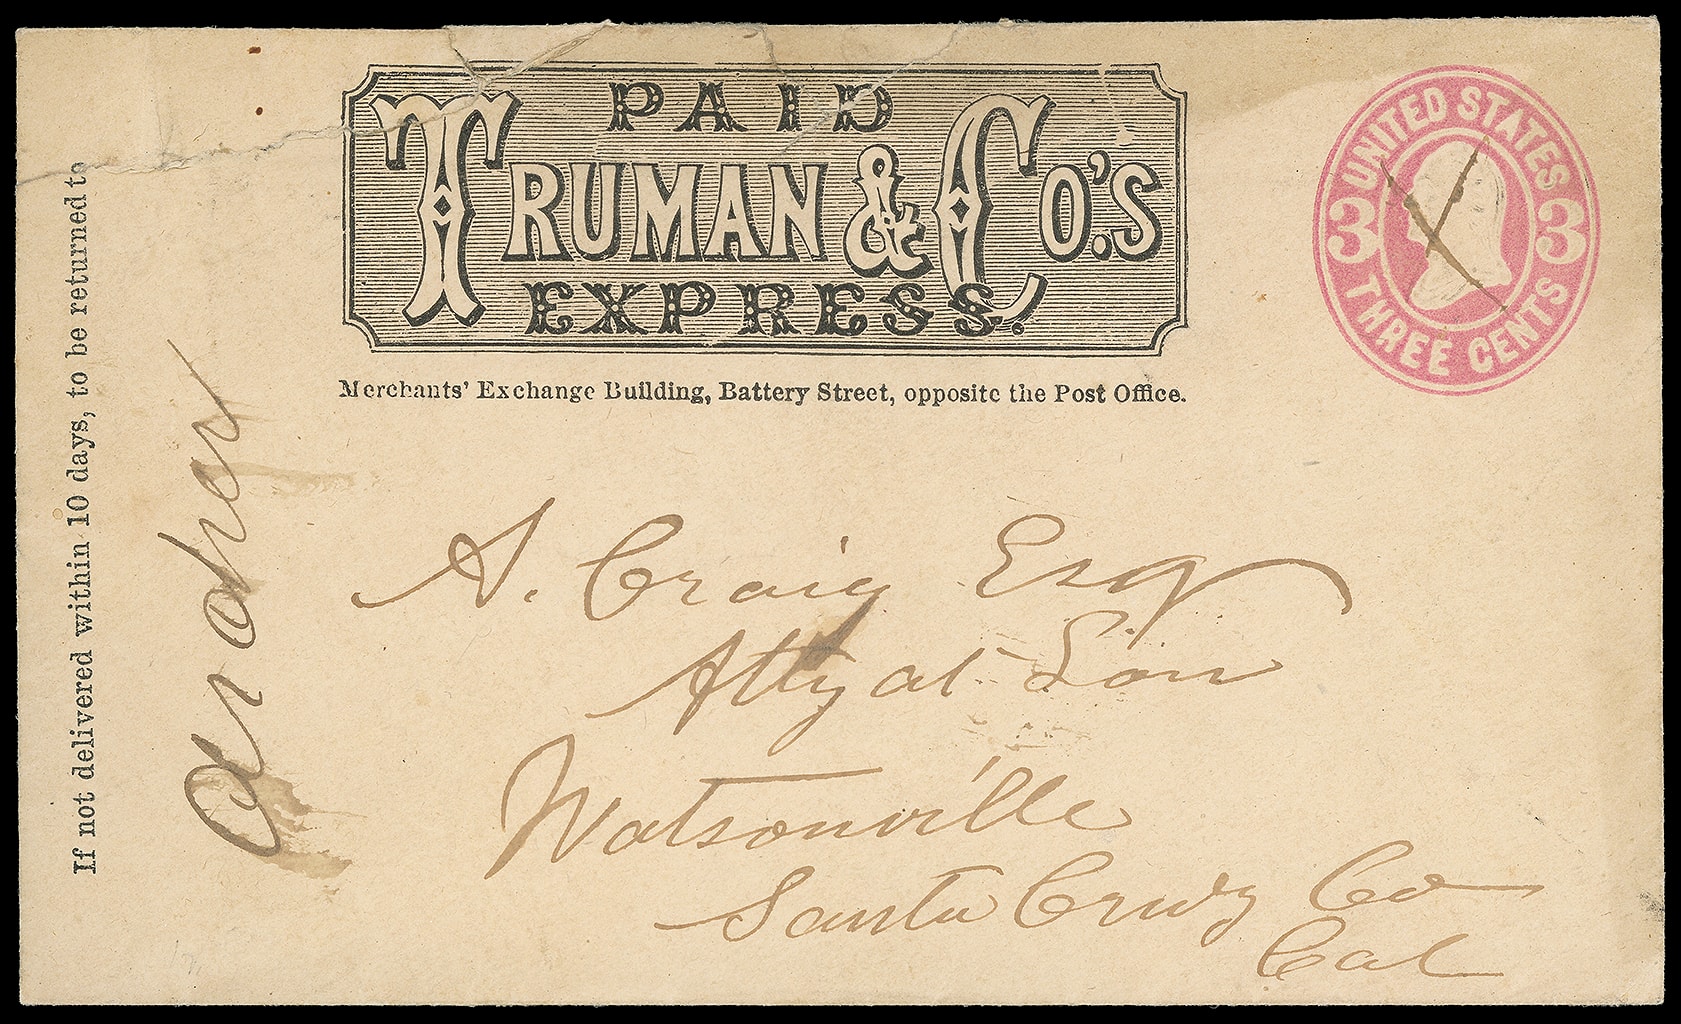 PAID
TRUMAN & CO'S.
EXPRESS.
Merchants' Exchange Building, Battery Street, opposite the Post Office.
UNITED STATES
3 3
THREE CENTS
If not delivered within 10 days, to be returned to
A. Craig Esq
Atty at Law
Watsonville
Santa Cruz Co
Cal